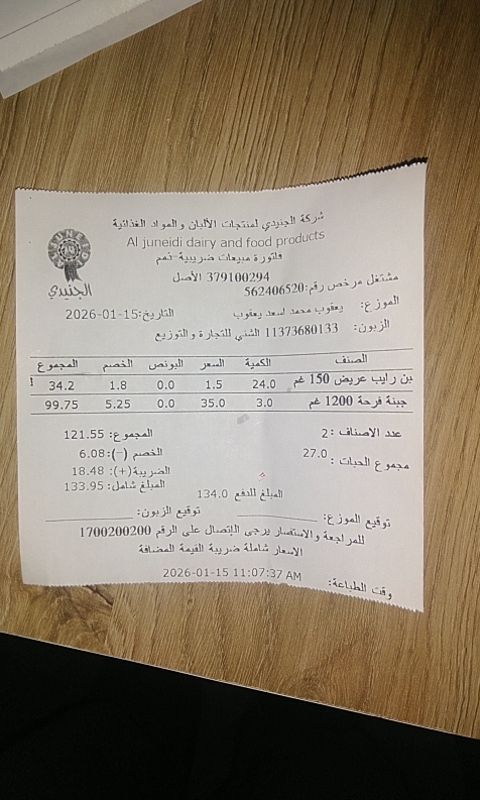 شركة الجنيدي لمنتجات الألبان والمواد الغذائية
Al juneidi dairy and food products
فاتورة مبيعات ضريبية-نمم
379100294 الأصل
الجنيدي
مشتغل مرخص رقم:562406520
الموزع: يعقوب محمد اسعد يعقوب التاريخ:15-01-2026
الزبون: 11373680133 الشني للتجارة والتوزيع
الصنف الكمية السعر البونص الخصم المجموع
بن رايب عريض 150 غم 24.0 1.5 0.0 1.8 34.2
جبنة فرحة 1200 غم 3.0 35.0 0.0 5.25 99.75
عدد الاصناف :2 المجموع: 121.55
مجموع الحبات : 27.0 الخصم (-):6.08
الضريبة(+): 18.48
المبلغ للدفع 134.0 المبلغ شامل: 133.95
توقيع الموزع: توقيع الزبون:
للمراجعة والاستفسار يرجى الإتصال على الرقم 1700200200
الاسعار شاملة ضريبة القيمة المضافة
وقت الطباعة: 2026-01-15 11:07:37 AM